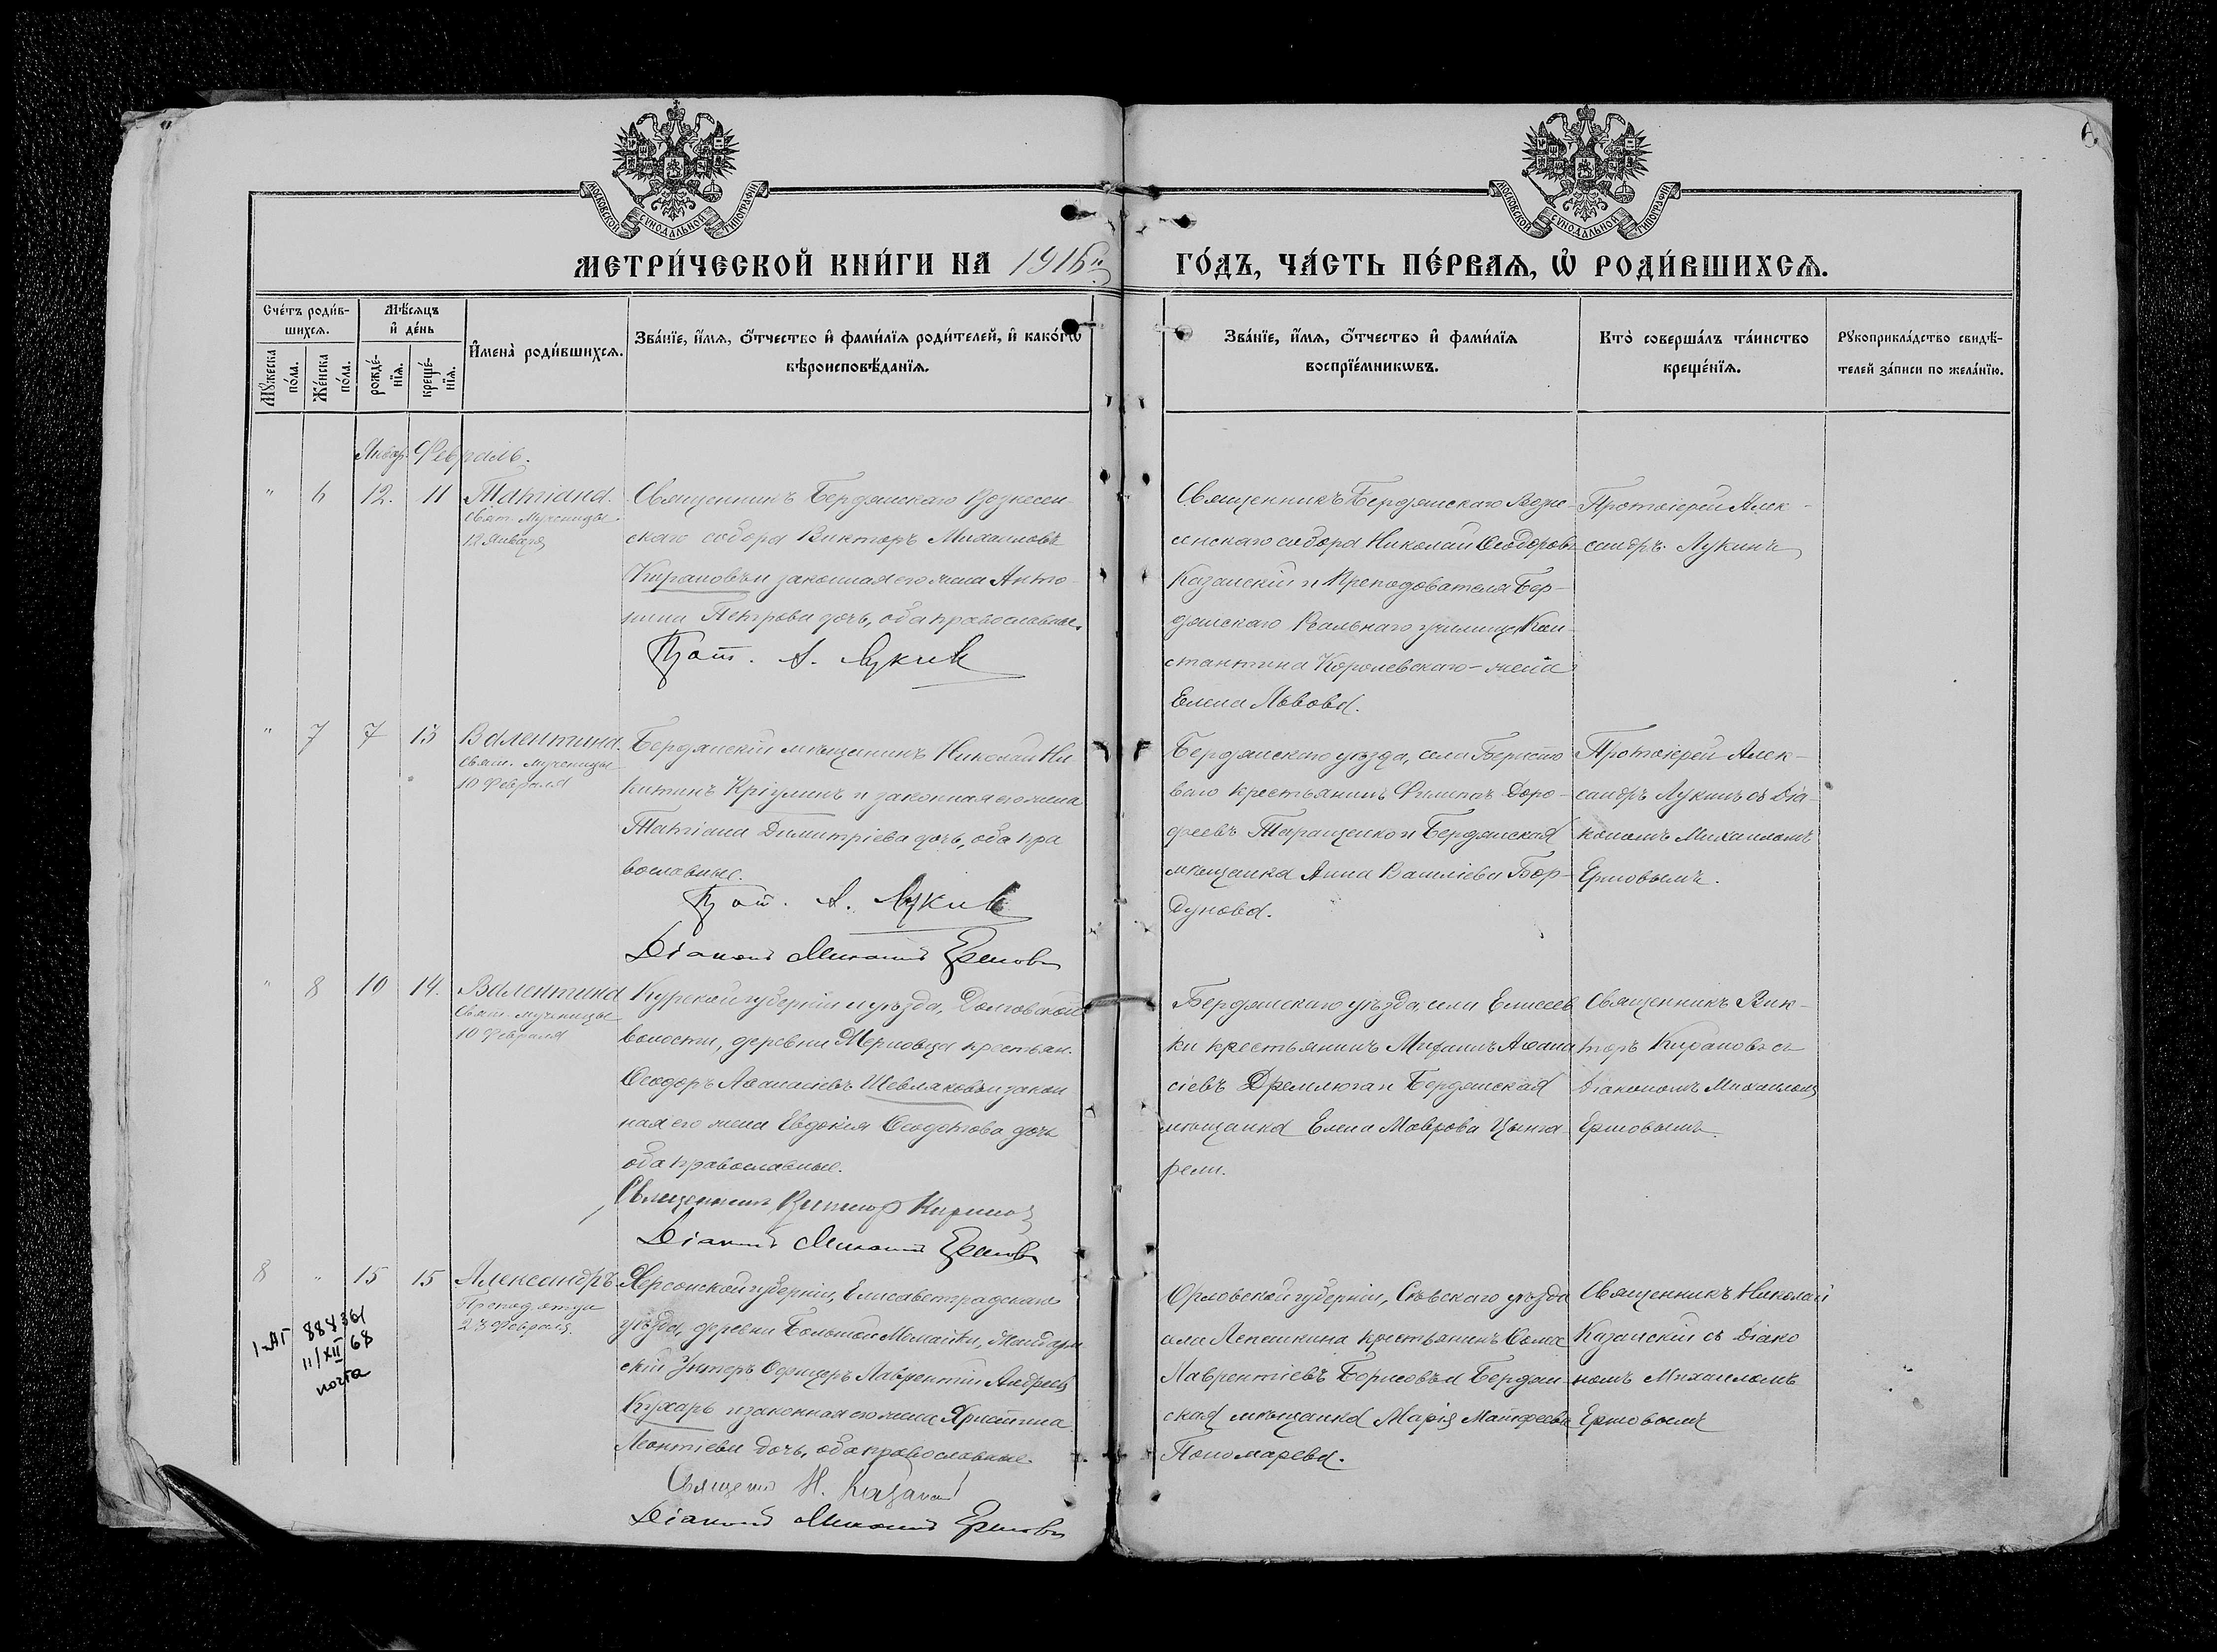 МОСКОВСКОЙ СѴНОДАЛЬНОЙ ТИПОГРАФІИ
МОСКОВСКОЙ СѴНОДАЛЬНОЙ ТИПОГРАФІИ
МЕТРИ́ЧЕСКОЙ КНИ́ГИ НА 1916й
ГО́ДЪ, ЧА́СТЬ ПЕ́РВАѦ, Ѡ҆ РОДИ́ВШИХСѦ.
Сче́тъ роди́в-
шихсѧ.
Мѣ́сѧцъ
и҆ де́нь
Мꙋ́жеска
по́ла.
Же́нска
по́ла.
рожде́-
нїѧ.
креще́-
нїѧ.
И҆мена̀ роди́вшихсѧ.
Зва́нїе, и҆́мѧ, ѻ҆́тчество и҆ фами́лїѧ роди́телей, и҆ како́гѡ
вѣроисповѣ́данїѧ.
Зва́нїе, и҆́мѧ, ѻ҆́тчество и҆ фами́лїѧ
воспрїе́мникѡвъ.
Кто̀ соверша́лъ та́инство
креще́нїѧ.
Рꙋкоприкла́дство свидѣ́-
телей за́писи по жела́нїю.
Январ. Февраль.
" 6 12. 11 Татіана.
Свят. Мученицы
12 Января
Священникъ Бердянскаго Вознесен-
скаго собора Викторъ Михаиловъ
Кирановъ и законная его жена Анто-
нина Петрова дочь, оба православные.
Прот. А. Лукин
Священникъ Бердянскаго Возне-
сенскаго собора Николай Ѳеодоровъ
Казанскій и Преподавателя Бер-
дянскаго Реальнаго училища Кон-
стантина Королевскаго - жена
Елена Львова.
Протоіерей Алек-
сандръ Лукинъ
" 7 7 13 Валентина.
Свят. мученицы
10 Февраля
Бердянскій мѣщанинъ Николай Ни
китинъ Кріулинъ и законная его жена
Татіана Димитріева дочь, оба пра
вославные.
Прот. А. Лукин
Діаконъ Михаилъ Ершовъ
Бердянскаго уѣзда, села Бересто
ваго крестьянинъ Филиппъ Доро-
феевъ Таращенко и Бердянская
мѣщанка Анна Василіева Бор-
дунова.
Протоіерей Алек-
сандръ Лукинъ съ Діа-
кономъ Михаиломъ
Ершовымъ.
" 8 10 14. Валентина
Свят. мученицы
10 Февраля
Курской губерніи и уѣзда, Долговской
волости, деревни крестьян.
Ѳеодоръ Аѳанасіевъ Шевляковъ и закон
ная его жена Евдокія Ѳеодотова дочь
оба православные.
Священникъ Викторъ Киранов
Діаконъ Михаилъ Ершовъ
Бердянскаго уѣзда, села Елисеев
ки крестьянинъ Михаилъ Аѳана
сіевъ Дремлюга и Бердянская
мѣщанка Елена Маврова
рели.
Священникъ Вик-
торъ Кирановъ съ
Діакономъ Михаиломъ
Ершовымъ.
8 " 15 15 Александръ
Препод. отца
23 Февраля.
1-АГ 884361
11/XII/68
почта
Херсонской губерніи, Елисаветградскаго
уѣзда, деревни Большой Мамайки, Жандарм
скій Унтеръ Офицеръ Лаврентій Андреевъ
Кухарь и законная его жена Христина
Леонтіева дочь, оба православные.
Священ. Н. Казанскій
Діаконъ Михаилъ Ершовъ
Орловской губерніи, Сѣвскаго уѣзда
села Лепешкина крестьянинъ Ѳома
Лаврентіевъ Борисовъ и Бердян-
ская мѣщанка Марія Матѳеева
Пономарева.
Священникъ Николай
Казанскій съ Діако
номъ Михаиломъ
Ершовымъ